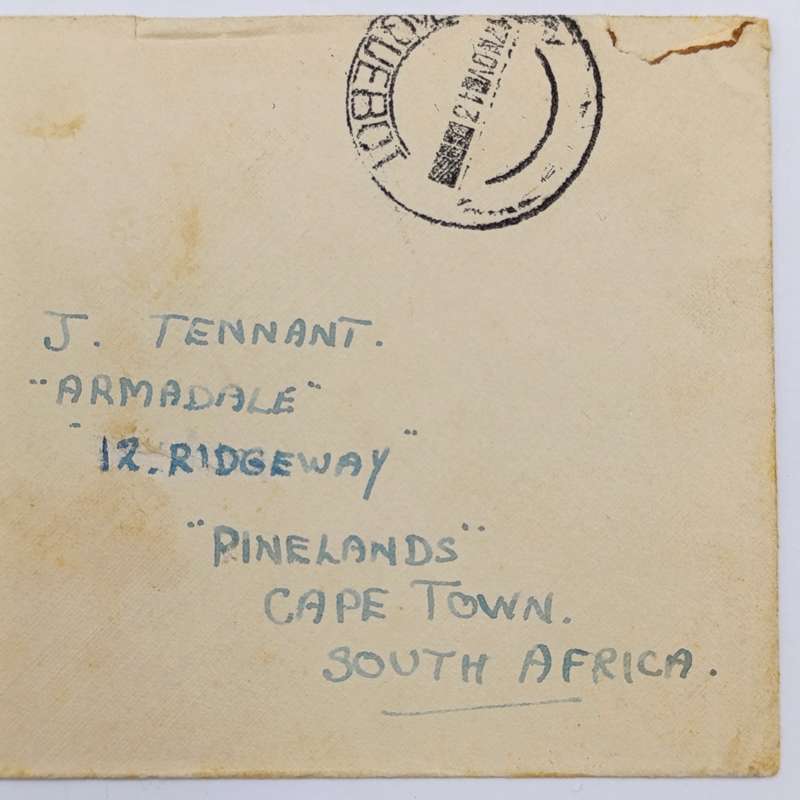 QUEBOT
NOV
J. TENNANT.
"ARMADALE"
"12. RIDGEWAY"
"PINELANDS"
CAPE TOWN.
SOUTH AFRICA.